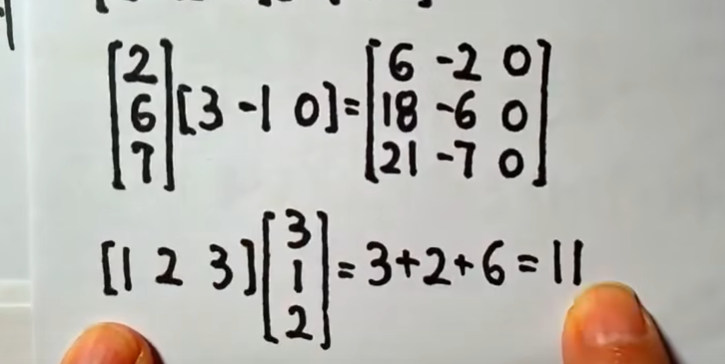 [2 6 7] [3 -1 0] = [6 -2 0 18 -6 0 21 -7 0]
[1 2 3] [3 1 2] = 3+2+6 = 11